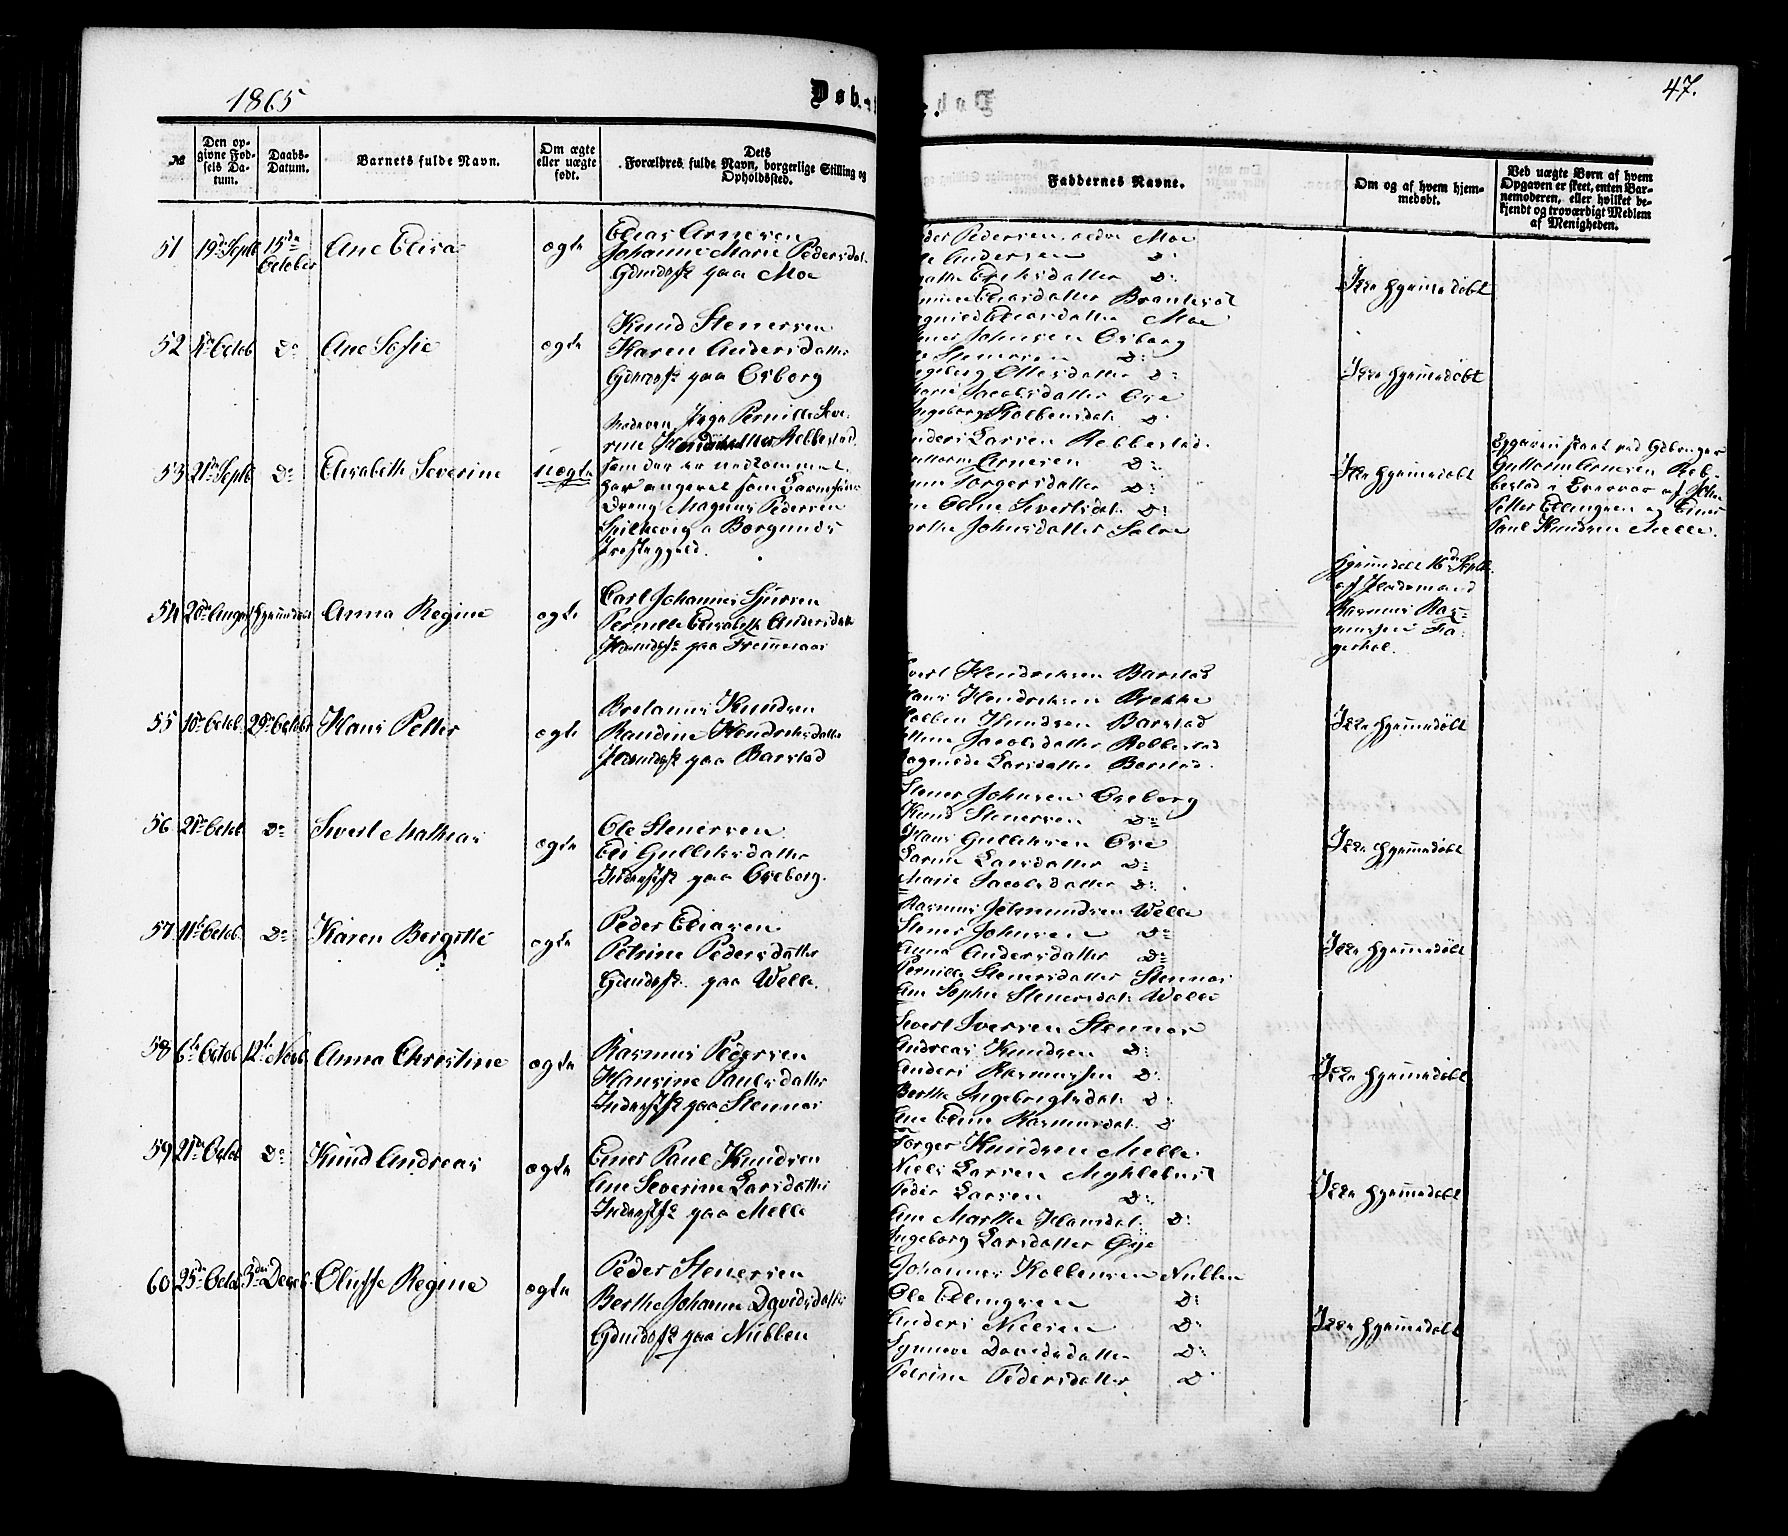 1865
Døb
47.
№
Den opgivne Fødsels Datum.
Daabs-Datum.
Barnets fulde Navn.
Om ægte eller uægte født.
Dets Forældres fulde Navn, borgerlige Stilling og Opholdssted.
Faddernes Navne.
Om og af hvem hjemmedøbt.
Ved uægte Børn af hvem Opgaven er skeet, enten Barnemoderen, eller hvilket bekjendt og troværdigt Medlem af Menigheden.
51 19de Septb 15de October Ane Elisa ægte
Elias Arnesen
Johanne Marie Pedersdat.
Gdmdsfk paa Moe
Pedersen Moe
Andersen D:
Eriksdatter D:
Eliasdatter Brautesæt
Eliasdatter Moe
Ikke hjemmedøbt
52 Octob Do Ane Sofie ægte
Knud Stenersen
Karen Andersdatter
Gdmdsfk paa Osborg
Johnsen Osborg
Stenersen D:
Ottesdatter D:
Jacobsdatter Ose
Ingeborg Kolbensdat. D:
Ikke hjemmedøbt
53 21de Septb Do Elisabeth Severine uægte
Moderen Pige Pernille Seve-
rine Rebbestad
som der er nedkommet
har angivet som Barnefader
Dreng Magnus Pedersen
Spilkevig i Borgunds
Præstegjeld.
Anders Larsen Rebbestad
Guttorm Arnesen D:
Torgersdatter D:
Eline Sivertsdat. D:
Johnsdatter
Ikke hjemmedøbt
Opgaven skeet ved Gdbruger
Guttorm Arnesen Reb-
bestad
Petter Edlingsen og Einer
Paul Knudsen Melle.
54 August hjemmedøbt Anna Regine ægte
Carl Johannes Sjursen
Pernille Elisabeth Andersdatt
Huusmdsfk paa Fremmeraas
hjemmedøbt 16de Septb.
af Huusmand
Rasmus Ras-
mussen
55 10de Octob. 29de Octobr Hans Petter ægte
Bretanus Knudsen
Randine Hendriksdatter
Huusmdsfk paa Barstad
Sivert Hendriksen Barstad
Hans Hendriksen Brekke
Kolben Knudsen Barstad
Jacobsdatter Rebbestad
Ragnilde Larsdatter Barstad.
Ikke hjemmedøbt
56 21de Octob. Do Sivert Mathias ægte
Ole Stenersen
Eli Gulliksdatter
Inderstfk paa Oseborg.
Stener Johnsen Oseborg
Knud Stenersen D:
Hans Gulliksen Ose
Larsdatter D:
Marie Jacobsdatter D:
Ikke hjemmedøbt
57 11te Octob. Do Karen Bergitte ægte
Peder Eliasen
Petrine Pedersdatter
Gdmdsfk. paa Welle.
Rasmus Jetmundsen Welle
Stener Johnsen D:
Anna Andersdatter D:
Pernille Stenersdatter Stennes
Ane Sophie Stenersdat. Welle
Ikke hjemmedøbt
58 6te Octob 12te Novb. Anna Christine ægte
Rasmus Pedersen
Hansine Paulsdatter
Inderstfk paa Stennes
Sivert Iversen Stennes
Andreas Knudsen D:
Anders Rasmussen D:
Berthe Ingebrigtsdat. D:
Ane Eline Rasmusdat. D
Ikke hjemmedøbt
59 21de Octob Do Knud Andreas ægte
Einer Paul Knudsen
Ane Severine Larsdatter
Inderstfk paa Melle
Torger Knudsen Melle
Niels Larsen Myklebust
Peder Larsen D:
Ane Marthe Hansdat. D:
Ingeborg Larsdatter Øye
Ikke hjemmedøbt
60 25de Octob 3die Decemb. Oluffe Regine ægte
Peder Stenersen
Berthe Johanne Davidsdatter
Gdmdsfk paa Nubben
Johannes Kolbensen Nubben
Ole Edlingsen D:
Anders Nielsen D:
Synneve Davidsdatter D:
Petrine Pedersdatter D
Ikke hjemmedøbt